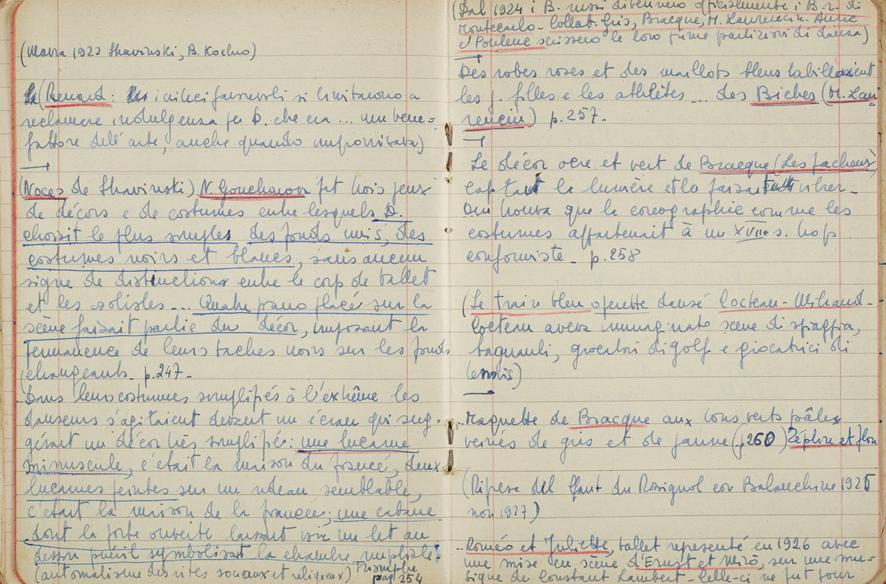 (Mavra 1922 Stravinski, B. Kochno)
(Renard: i critici favorevoli si limitarono a
reclamare indulgenza per D. che era ... un bene=
fattore dell'arte, anche quando improvvisava)
(Noces de Stravinski), N. Gontcharova fit trois jeux
de décors e de costumes entre lesquels D.
choisit le plus simples, des fonds unis, des
costumes noirs et blancs, sans aucun
signe de distinctions entre le corp de ballet
et les solistes ... Quatre piano placé sur la
scène faisait partie du décor, imposant la
permanence de leurs taches noirs sur les fonds
changeants. p. 247-
Dans leurs costumes simplifiés à l'extrême les
danseurs s'agitaient devant un écran qui sug-
gérait un décor très simplifié: une lucarne
minuscule, c'était la maison du fiancé, deux
lucarnes peintes sur un rideau semblable,
c'était la maison de la fiancée; une cabane
dont la porte ouverte laissait voir un lit au
dessin puéril symbolisait la chambre nuptiale:
(automatisme des rites sociaux et religieux) Triomphe
pag 254
(Dal 1924 i B. russi divennero officialmente i B. r. di
Montecarlo. Collab. Gris, Bracque, M. Laurencin. Auric
e Poulenc scrissero le loro prime partizioni di danza)
Des robes roses et des maillots bleus habillaient
les j. filles e les athlètes ... des Biches (M. Lau
rencin) p. 257.
Le décor ocre et vert de Bracque (Les facheux)
captant la lumière et la faisait vibrer-
On trouva que la coreographie comme les
costumes appartenait à un XVIIe s. trop
conformiste. p. 258
(Le train bleu operette dansé Cocteau-Milhaud-
Cocteau aveva immaginato scene di spiaggia,
bagnanti, giocatori di golf e giocatrici di
tennis)
Maquette de Bracque aux tons verts pâles
vernés de gris et de jaune (p 260) Zéphire et flore
(Ripresa del Chant du Rossignol con Balanchine 1925
non 1927)
Roméo et Juliette, ballet representé en 1926 avec
une mise en scène d'Ernst et Mirò, sur une mu-
sique de Constant Lambert- Celle-ci ne fut pour